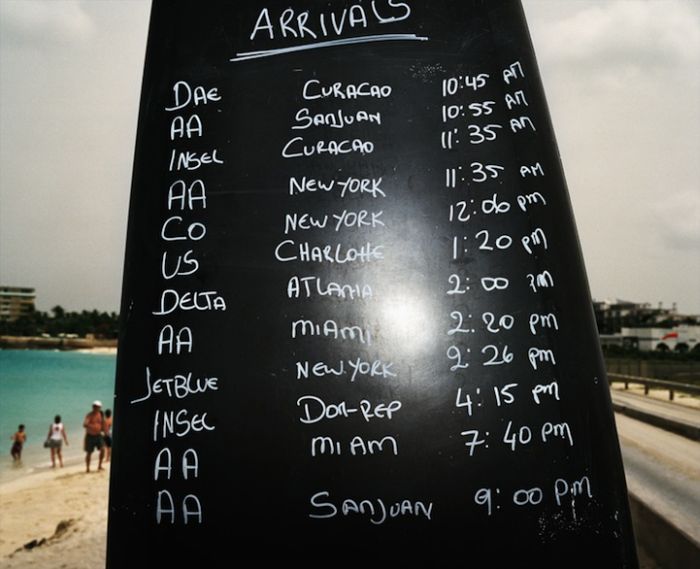 ARRIVALS
DAE CURACAO 10:45 AM
AA SANJUAN 10:55 AM
INSEL CURACAO 11:35 AM
AA NEW YORK 11:35 AM
CO NEW YORK 12:06 PM
US CHARLOTTE 1:20 PM
DELTA ATLANTA 2:00 PM
AA MIAMI 2:20 PM
JETBLUE NEW YORK 2:26 PM
INSEL DOM-REP 4:15 PM
AA MIAM 7:40 PM
AA SANJUAN 9:00 PM